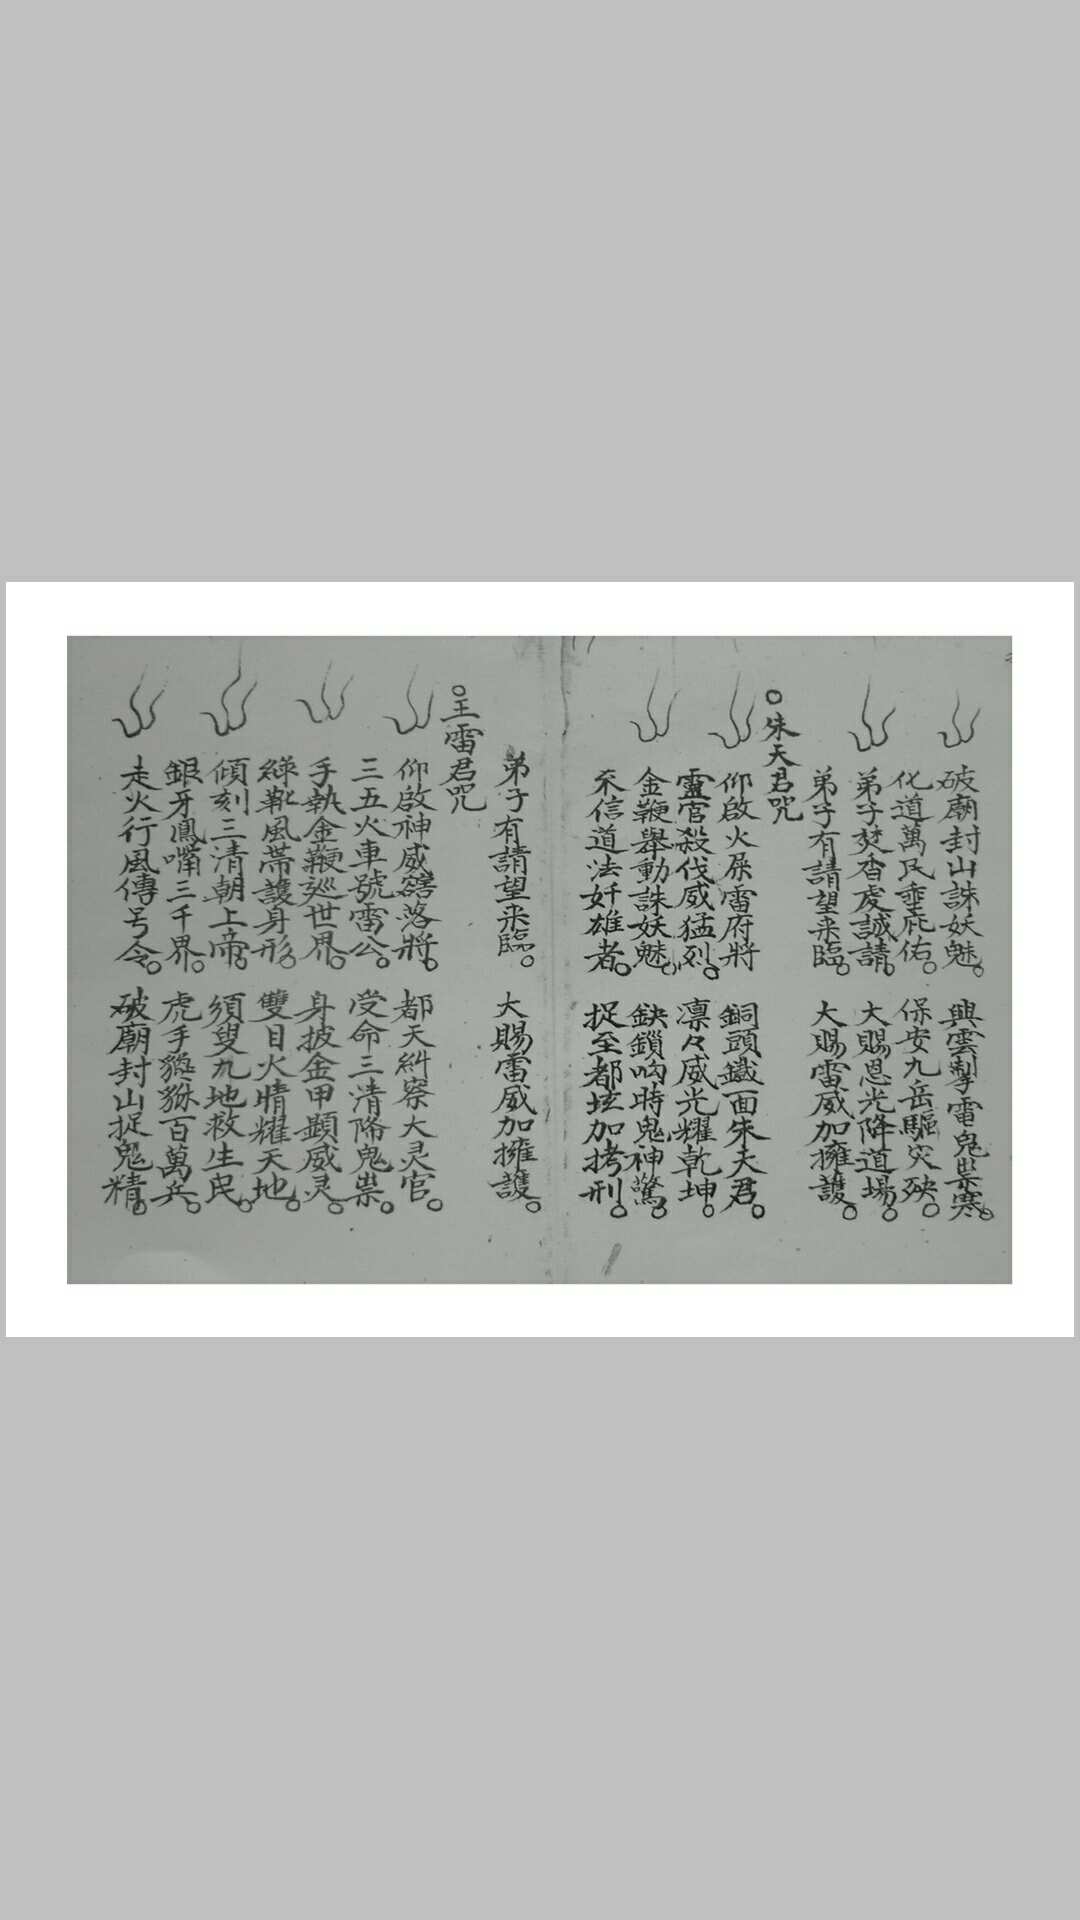 破廟封山誅妖魅。興雲掣電鬼祟寒。
化道萬民垂庇佑。保安九岳驅灾殃。
弟子焚香虔誠請。大賜恩光降道場。
弟子有請望来臨。大賜雷威加擁護。
朱天君咒
仰啟火犀雷府將 銅頭鐵面朱天君。
靈官殺伐威猛烈。凛々威光耀乾坤。
金鞭舉動誅妖魅。鈌鎖响時鬼神驚。
不信道法奸雄者。捉至都坛加拷刑。
弟子有請望来臨。大賜雷威加擁護。
王雷君咒
仰啟神威豁落將。都天糾察大灵官。
三五火車號雷公。受命三清降鬼祟。
手執金鞭巡世界。身披金甲顕威灵。
綠靴風帶護身形。雙目火睛耀天地。
傾刻三清朝上帝。須叟九地救生民。
銀牙鳳嘴三千界。虎手貔貅百萬兵。
走火行風傳号令。破廟封山捉鬼精。